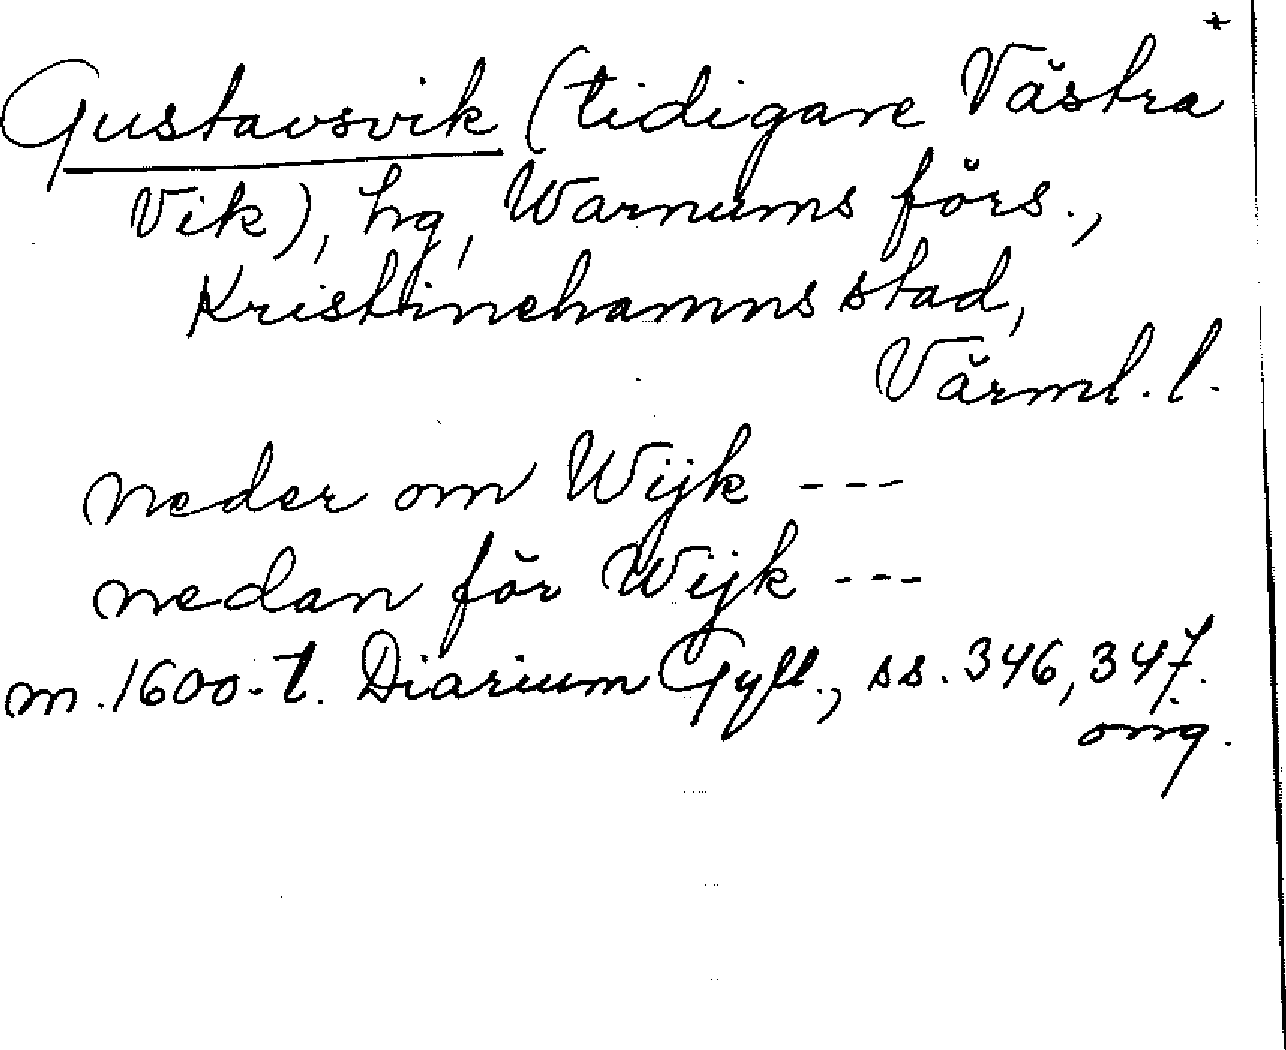 +
Gustavsvik (tidigare Västra
Vik), hg, Warnums förs.,
Kristinehamns stad,
Värml. l.
neder om Wijk ---
nedan för Wijk ---
m. 1600-t. Diarium Gyll., ss. 346, 347.
orig.